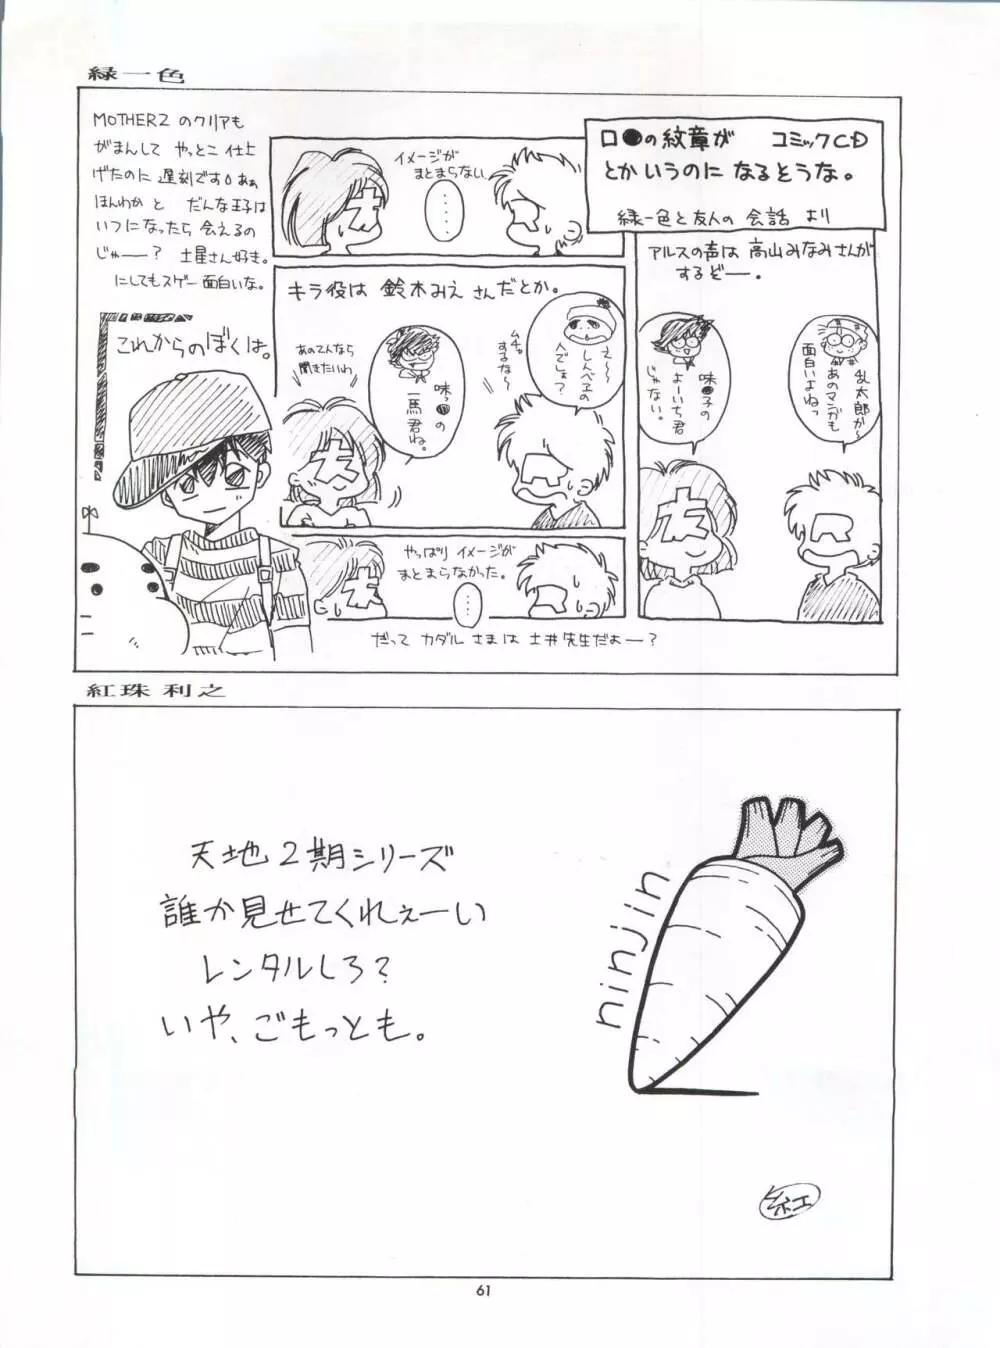 緑一色
MOTHER2 のクリアも
がまんして やっとこ 仕上
げたのに 遅刻です0 あぁ
ほんわか と だんな王子は
いつになったら 会えるの
じゃー? 土星さん好き。
にしてもスゲー面白いな。
これからのぼくは。
ロ●の紋章が コミックCD
とかいうのに なるそうな。
緑一色と友人の 会話 より
アルスの声は 高山みなみさんが
するぞー。
乱太郎か〜
あのマンガも
面白いよねっ
味●子の
よーいち君
じゃない。
キラ役は 鈴木みえ さんだとか。
え〜〜
しんべヱの
人でしょ?
ムチャ
するな〜
味っ●の
一馬君ね。
あのてんなら
聞きたいわ
イメージが
まとまらない
……
やっぱり イメージが
まとまらなかった。
……
だって カダル さまは 土井先生だよー?
紅珠 利之
天地2期シリーズ
誰か見せてくれぇーい
レンタルしろ?
いや、ごもっとも。
ninjin
紅
61